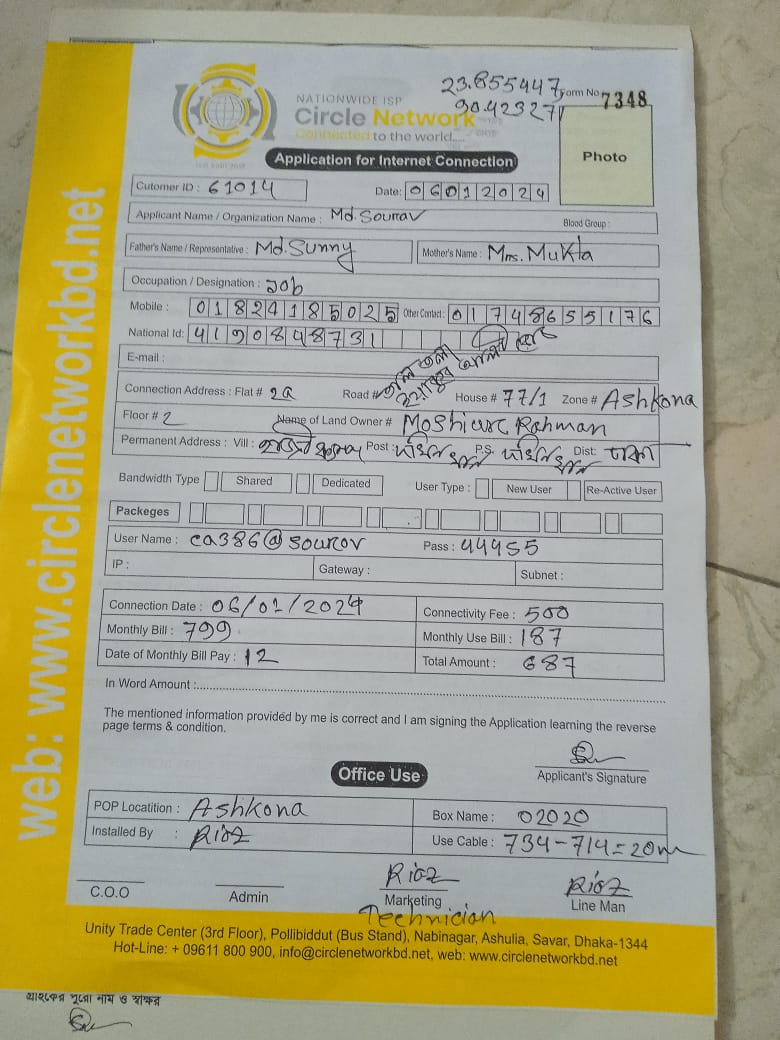 23.855447
90.423271
Form No 7348
NATIONWIDE ISP
Circle Network
Connected to the world....
Photo
Application for Internet Connection
Cutomer ID : 61014 Date: 06012024
Applicant Name / Organization Name : Md. Sourav Blood Group :
Father's Name / Representative : Md. Sunny Mother's Name : Mrs. Mukta
Occupation / Designation : Job
Mobile : 01824185025 Other Contact : 01748655176
National Id: 4190848731
E-mail :
Connection Address : Flat # 2a Road # House # 77/1 Zone # Ashkona
Floor # 2 Name of Land Owner # Moshiur Rahman
Permanent Address : Vill : Post : P.S. Dist: ঢাকা
Bandwidth Type Shared Dedicated User Type : New User Re-Active User
Packeges
User Name : ca386@sourov Pass : 44955
IP : Gateway : Subnet :
Connection Date : 06/01/2024 Connectivity Fee : 500
Monthly Bill : 799 Monthly Use Bill : 187
Date of Monthly Bill Pay : 12 Total Amount : 687
In Word Amount :
The mentioned information provided by me is correct and I am signing the Application learning the reverse
page terms & condition.
Applicant's Signature
Office Use
POP Locatition : Ashkona Box Name : 02020
Installed By : Riaz Use Cable : 734-714=20m
Riaz Riaz
C.O.O Admin Marketing Line Man
Technician
Unity Trade Center (3rd Floor), Pollibiddut (Bus Stand), Nabinagar, Ashulia, Savar, Dhaka-1344
Hot-Line: + 09611 800 900, info@circlenetworkbd.net, web: www.circlenetworkbd.net
গ্রাহকের পুরো নাম ও স্বাক্ষর
web: www.circlenetworkbd.net